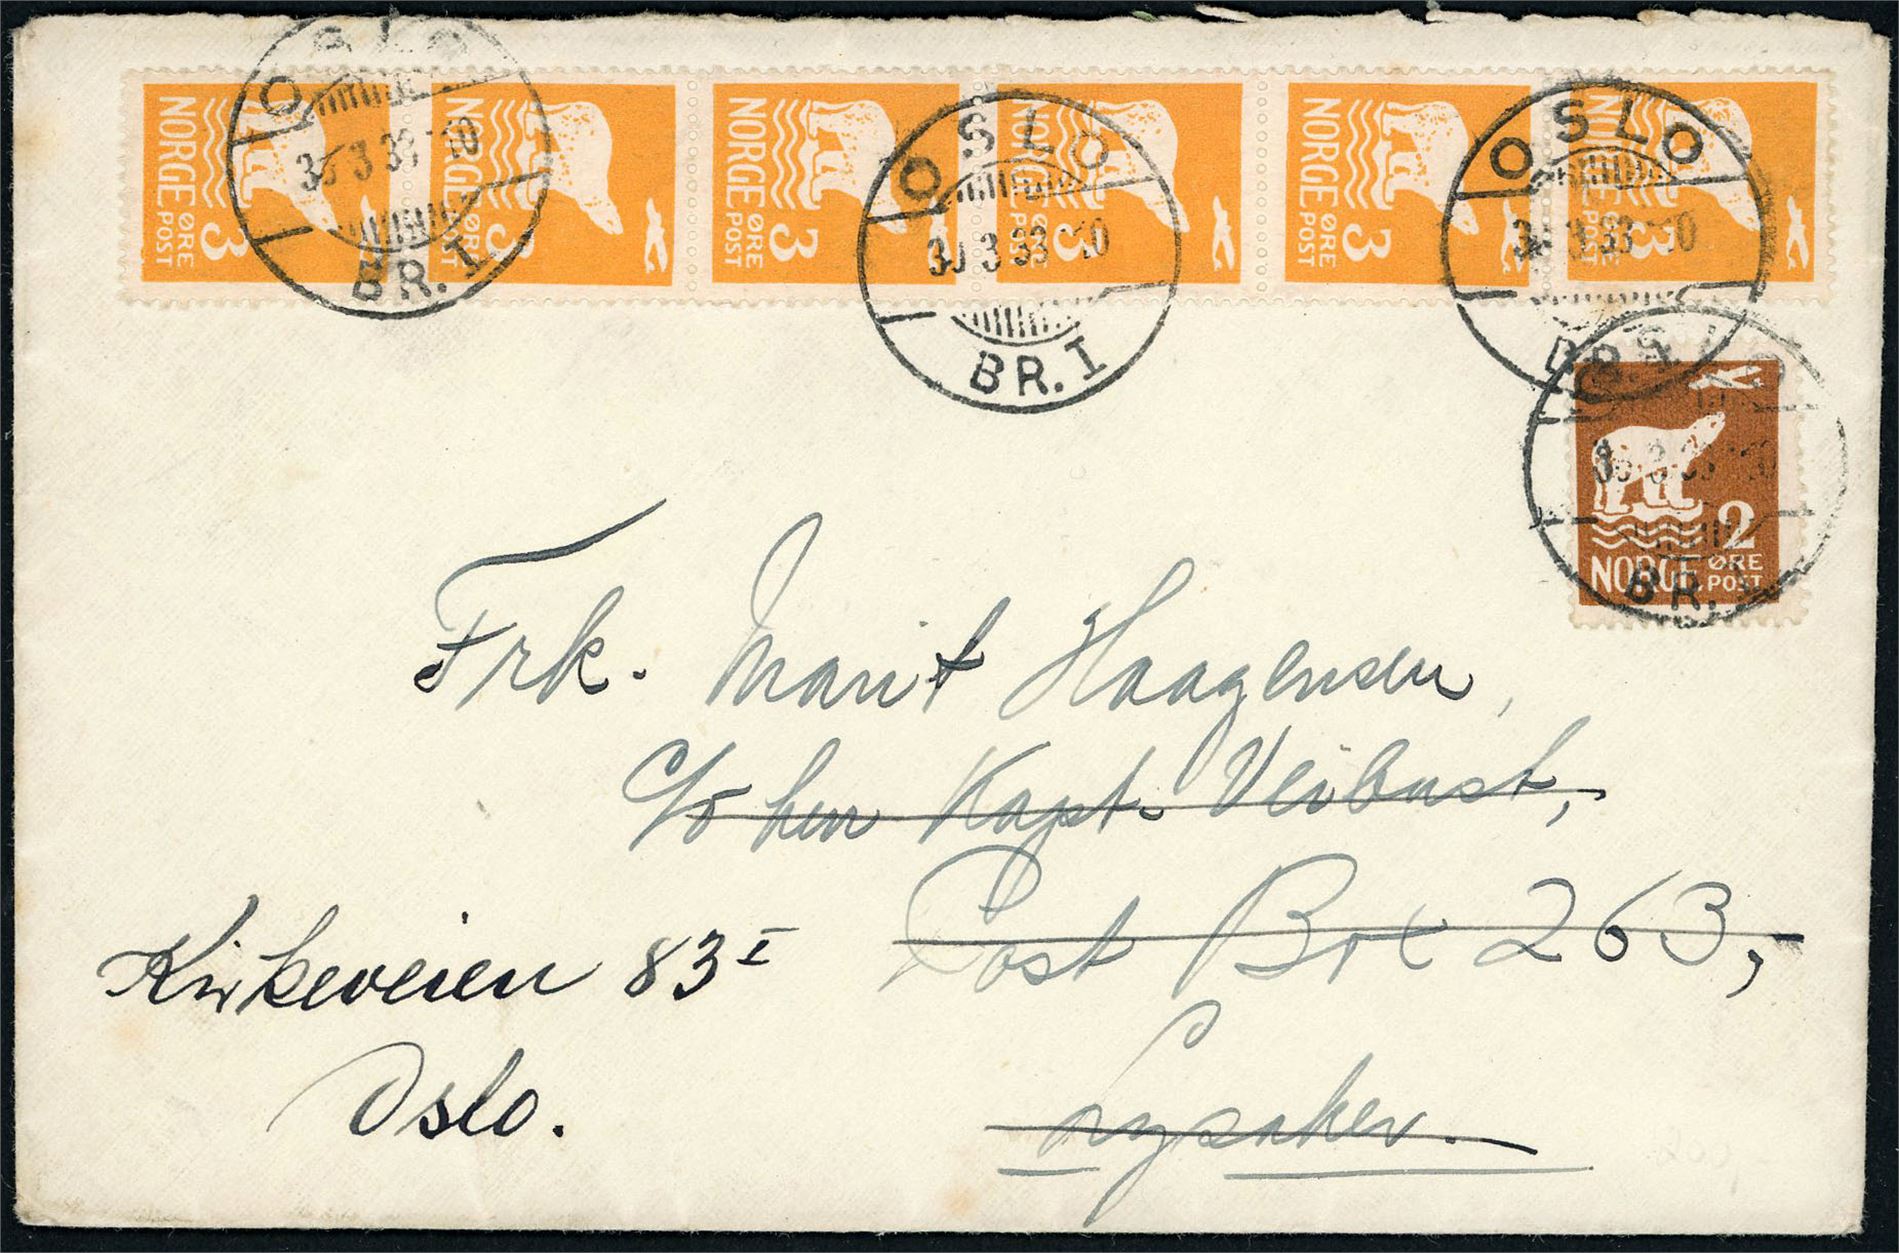 NORGE 3 ØRE POST
NORGE 3 ØRE POST
NORGE 3 ØRE POST
NORGE 3 ØRE POST
NORGE 3 ØRE POST
NORGE 3 ØRE POST
OSLO
3 33
BR. I
OSLO
3 33
BR. I
OSLO
3 33
BR. I
OSLO
BR. I
2
NORGE ØRE POST
Frk. Marit Haagensen,
c/o herr Kapt. Veibust,
Post Box 263,
Lysaker.
Kirkeveien 83 I
Oslo.